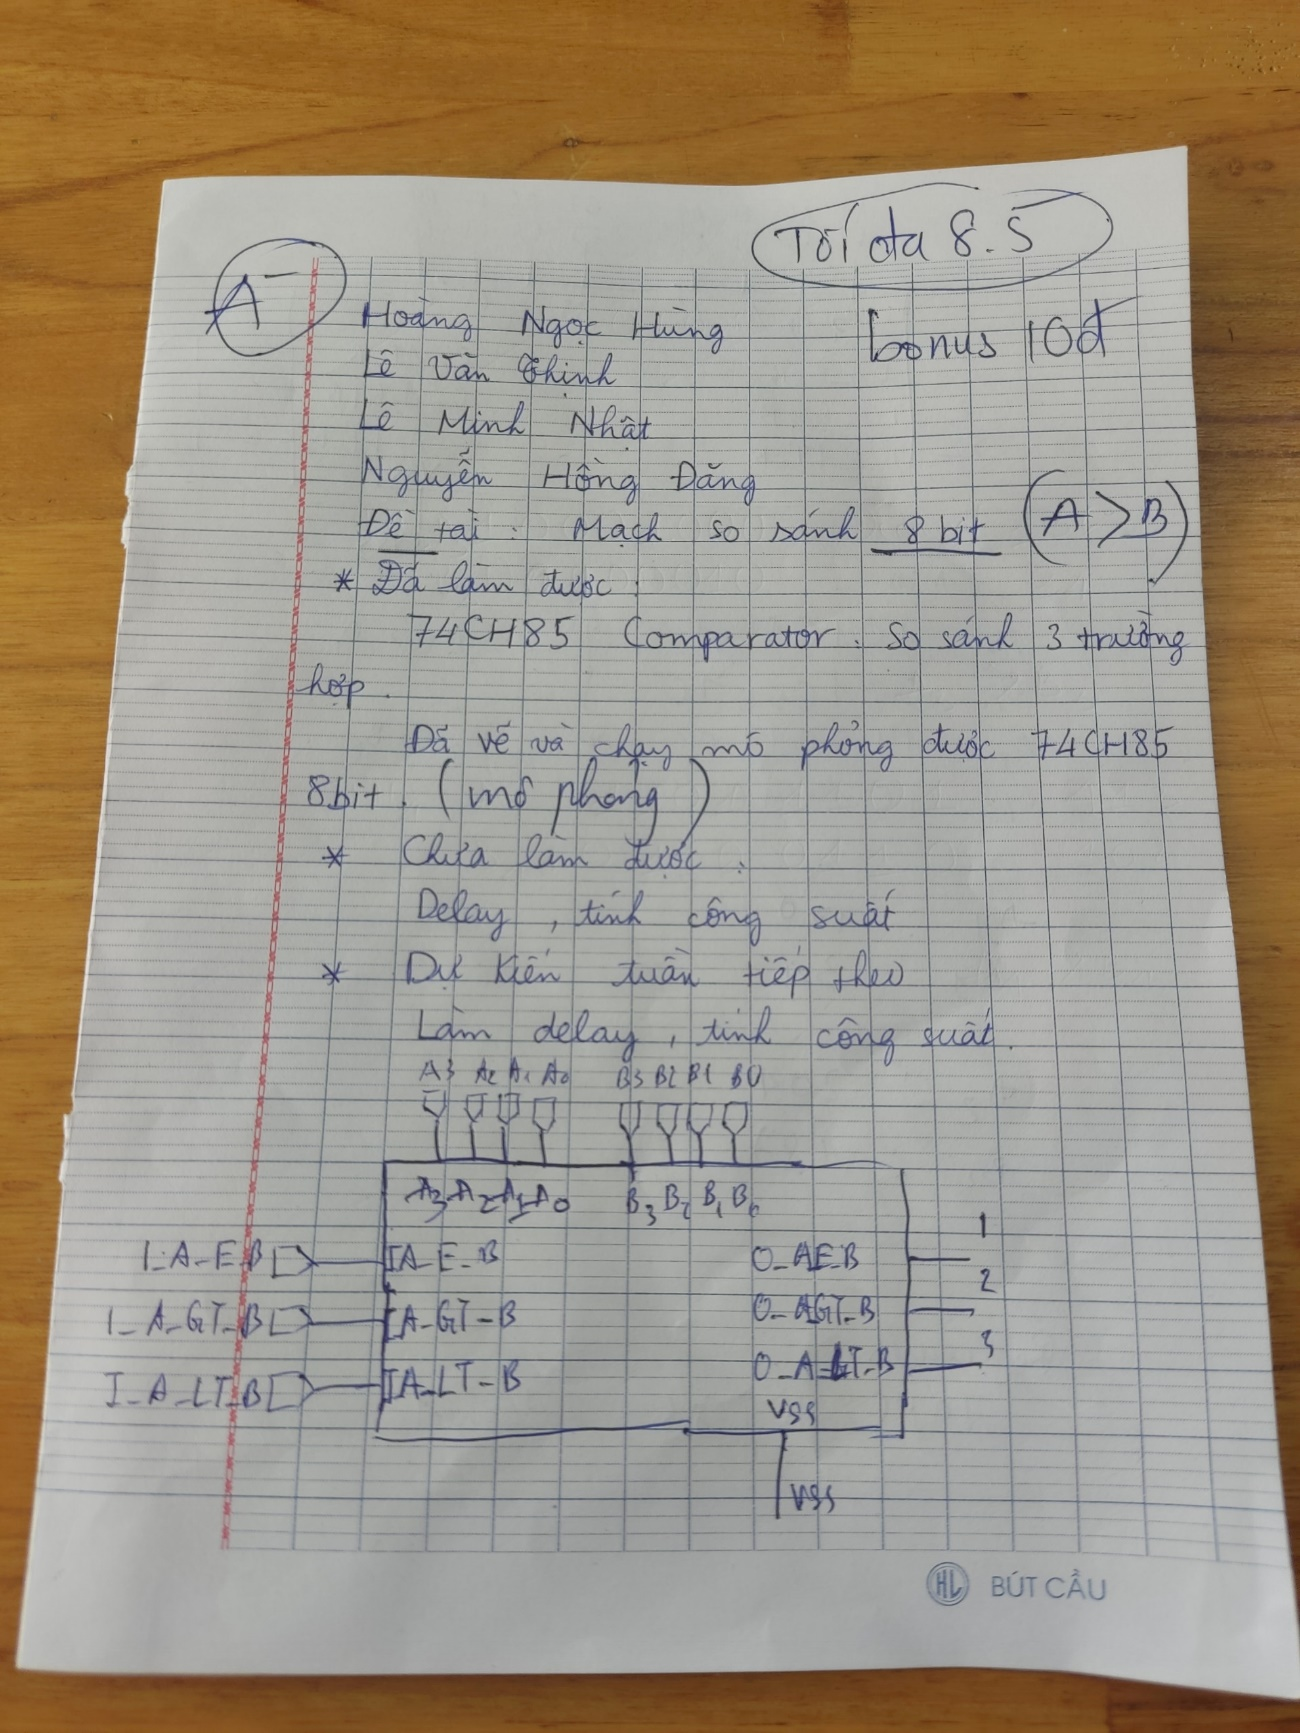 Tối đa 8.5
A-
bonus 10đ
Hoàng Ngọc Hùng
Lê Văn Thịnh
Lê Minh Nhật
Nguyễn Hồng Đăng
Đề tài : Mạch so sánh 8 bit (A > B)
* Đã làm được :
74CH85 Comparator. So sánh 3 trường
hợp.
Đã vẽ và chạy mô phỏng được 74CH85
8bit. (mô phỏng)
* Chưa làm được :
Delay, tính công suất
* Dự kiến tuần tiếp theo
Làm delay, tính công suất.
A3 A2 A1 A0 B3 B2 B1 B0
A3 A2 A1 A0 B3 B2 B1 B0
I_A_E_B IA_E_B O_AE_B 1
I_A_GT_B IA_GT_B O_AGT_B 2
I_A_LT_B IA_LT_B O_A_LT_B 3
VSS
VSS
HL BÚT CẨU